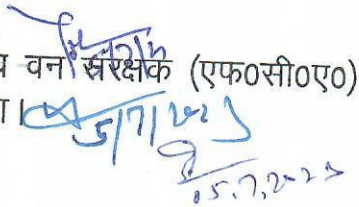 वन संरक्षक (एफ0सी0ए0)
5/7/2023
5.7.2023